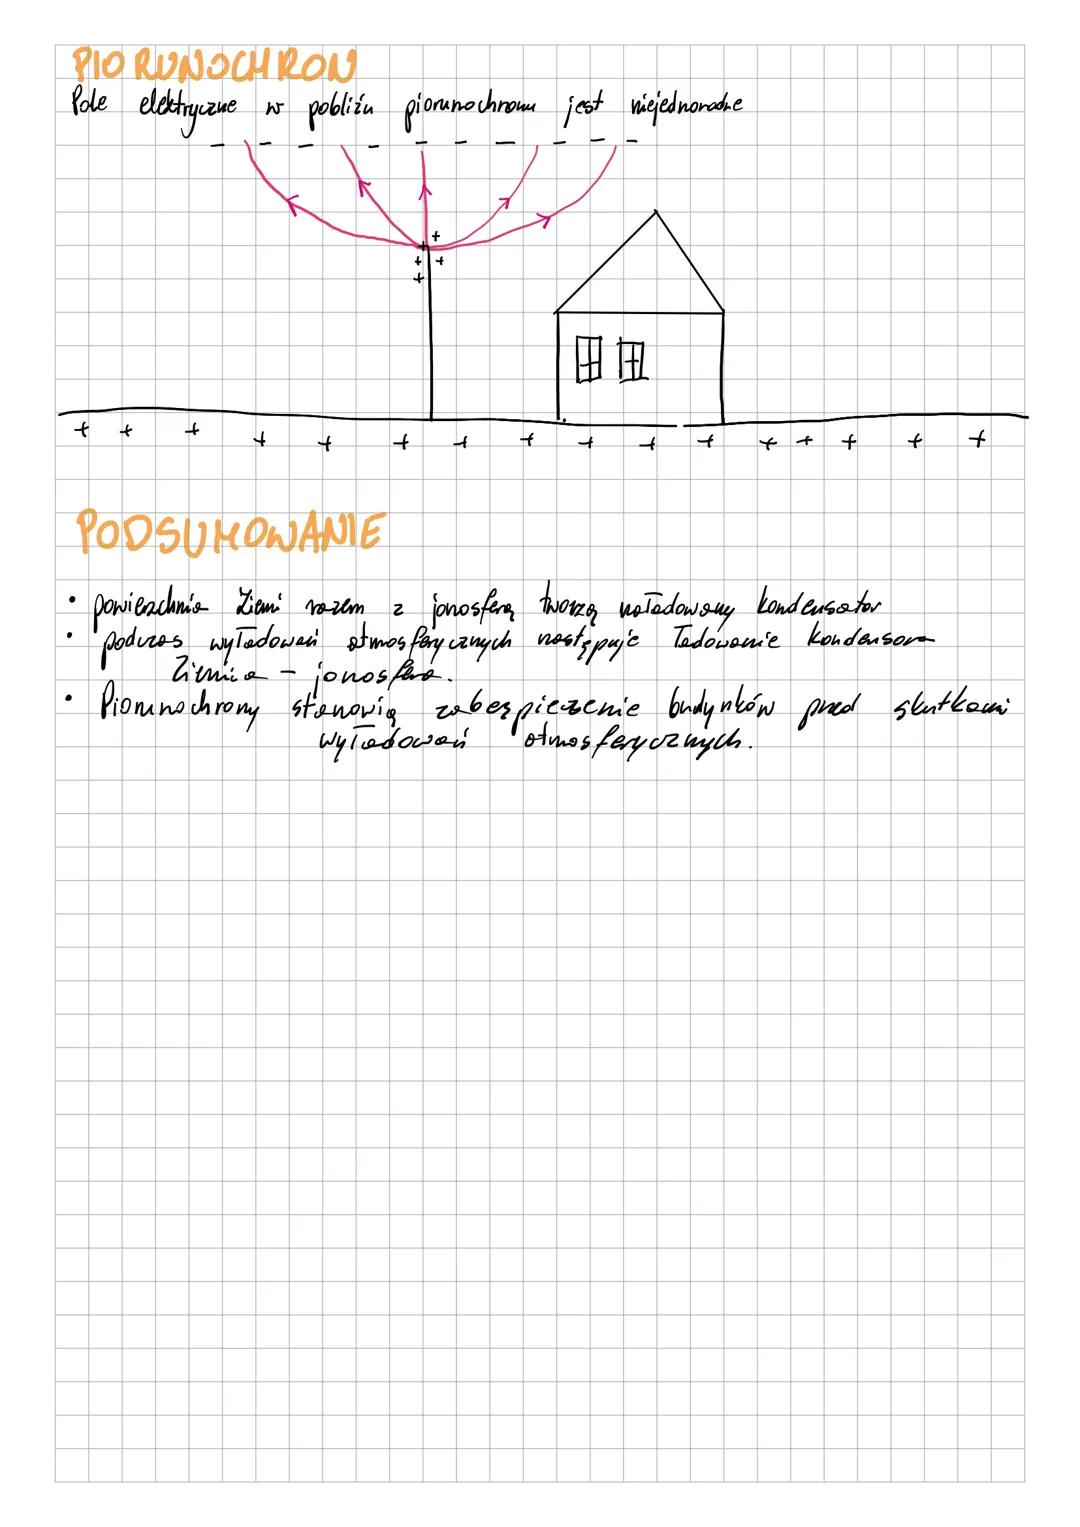 PIORUNOCHRON
Pole elektryczne w pobliżu piorunochronu jest niejednorodne
- - - - - - - - - -
+
+
+ +
+
+ + + + + + + + + + + + + + + +
PODSUMOWANIE
• powierzchnia Ziemi razem z jonosferą tworzą naładowany kondensator
• podczas wyładowań atmosferycznych następuje ładowanie kondensora
Ziemia - jonosfera.
• Piorunochrony stanowią zabezpieczenie budynków przed skutkami
wyładowań atmosferycznych.